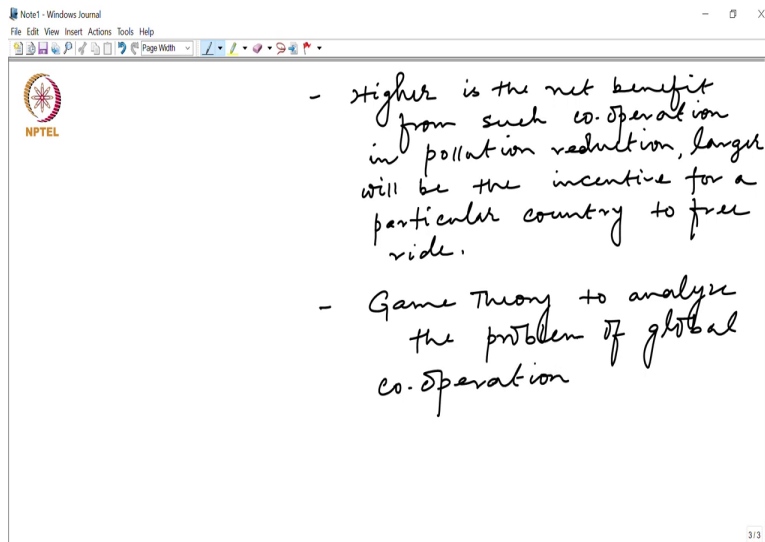 Note1 - Windows Journal
File Edit View Insert Actions Tools Help
Page Width
NPTEL
- Higher is the net benefit
from such co-operation
in pollution reduction, larger
will be the incentive for a
particular country to free
ride.
- Game Theory to analyze
the problem of global
co-operation
3/3